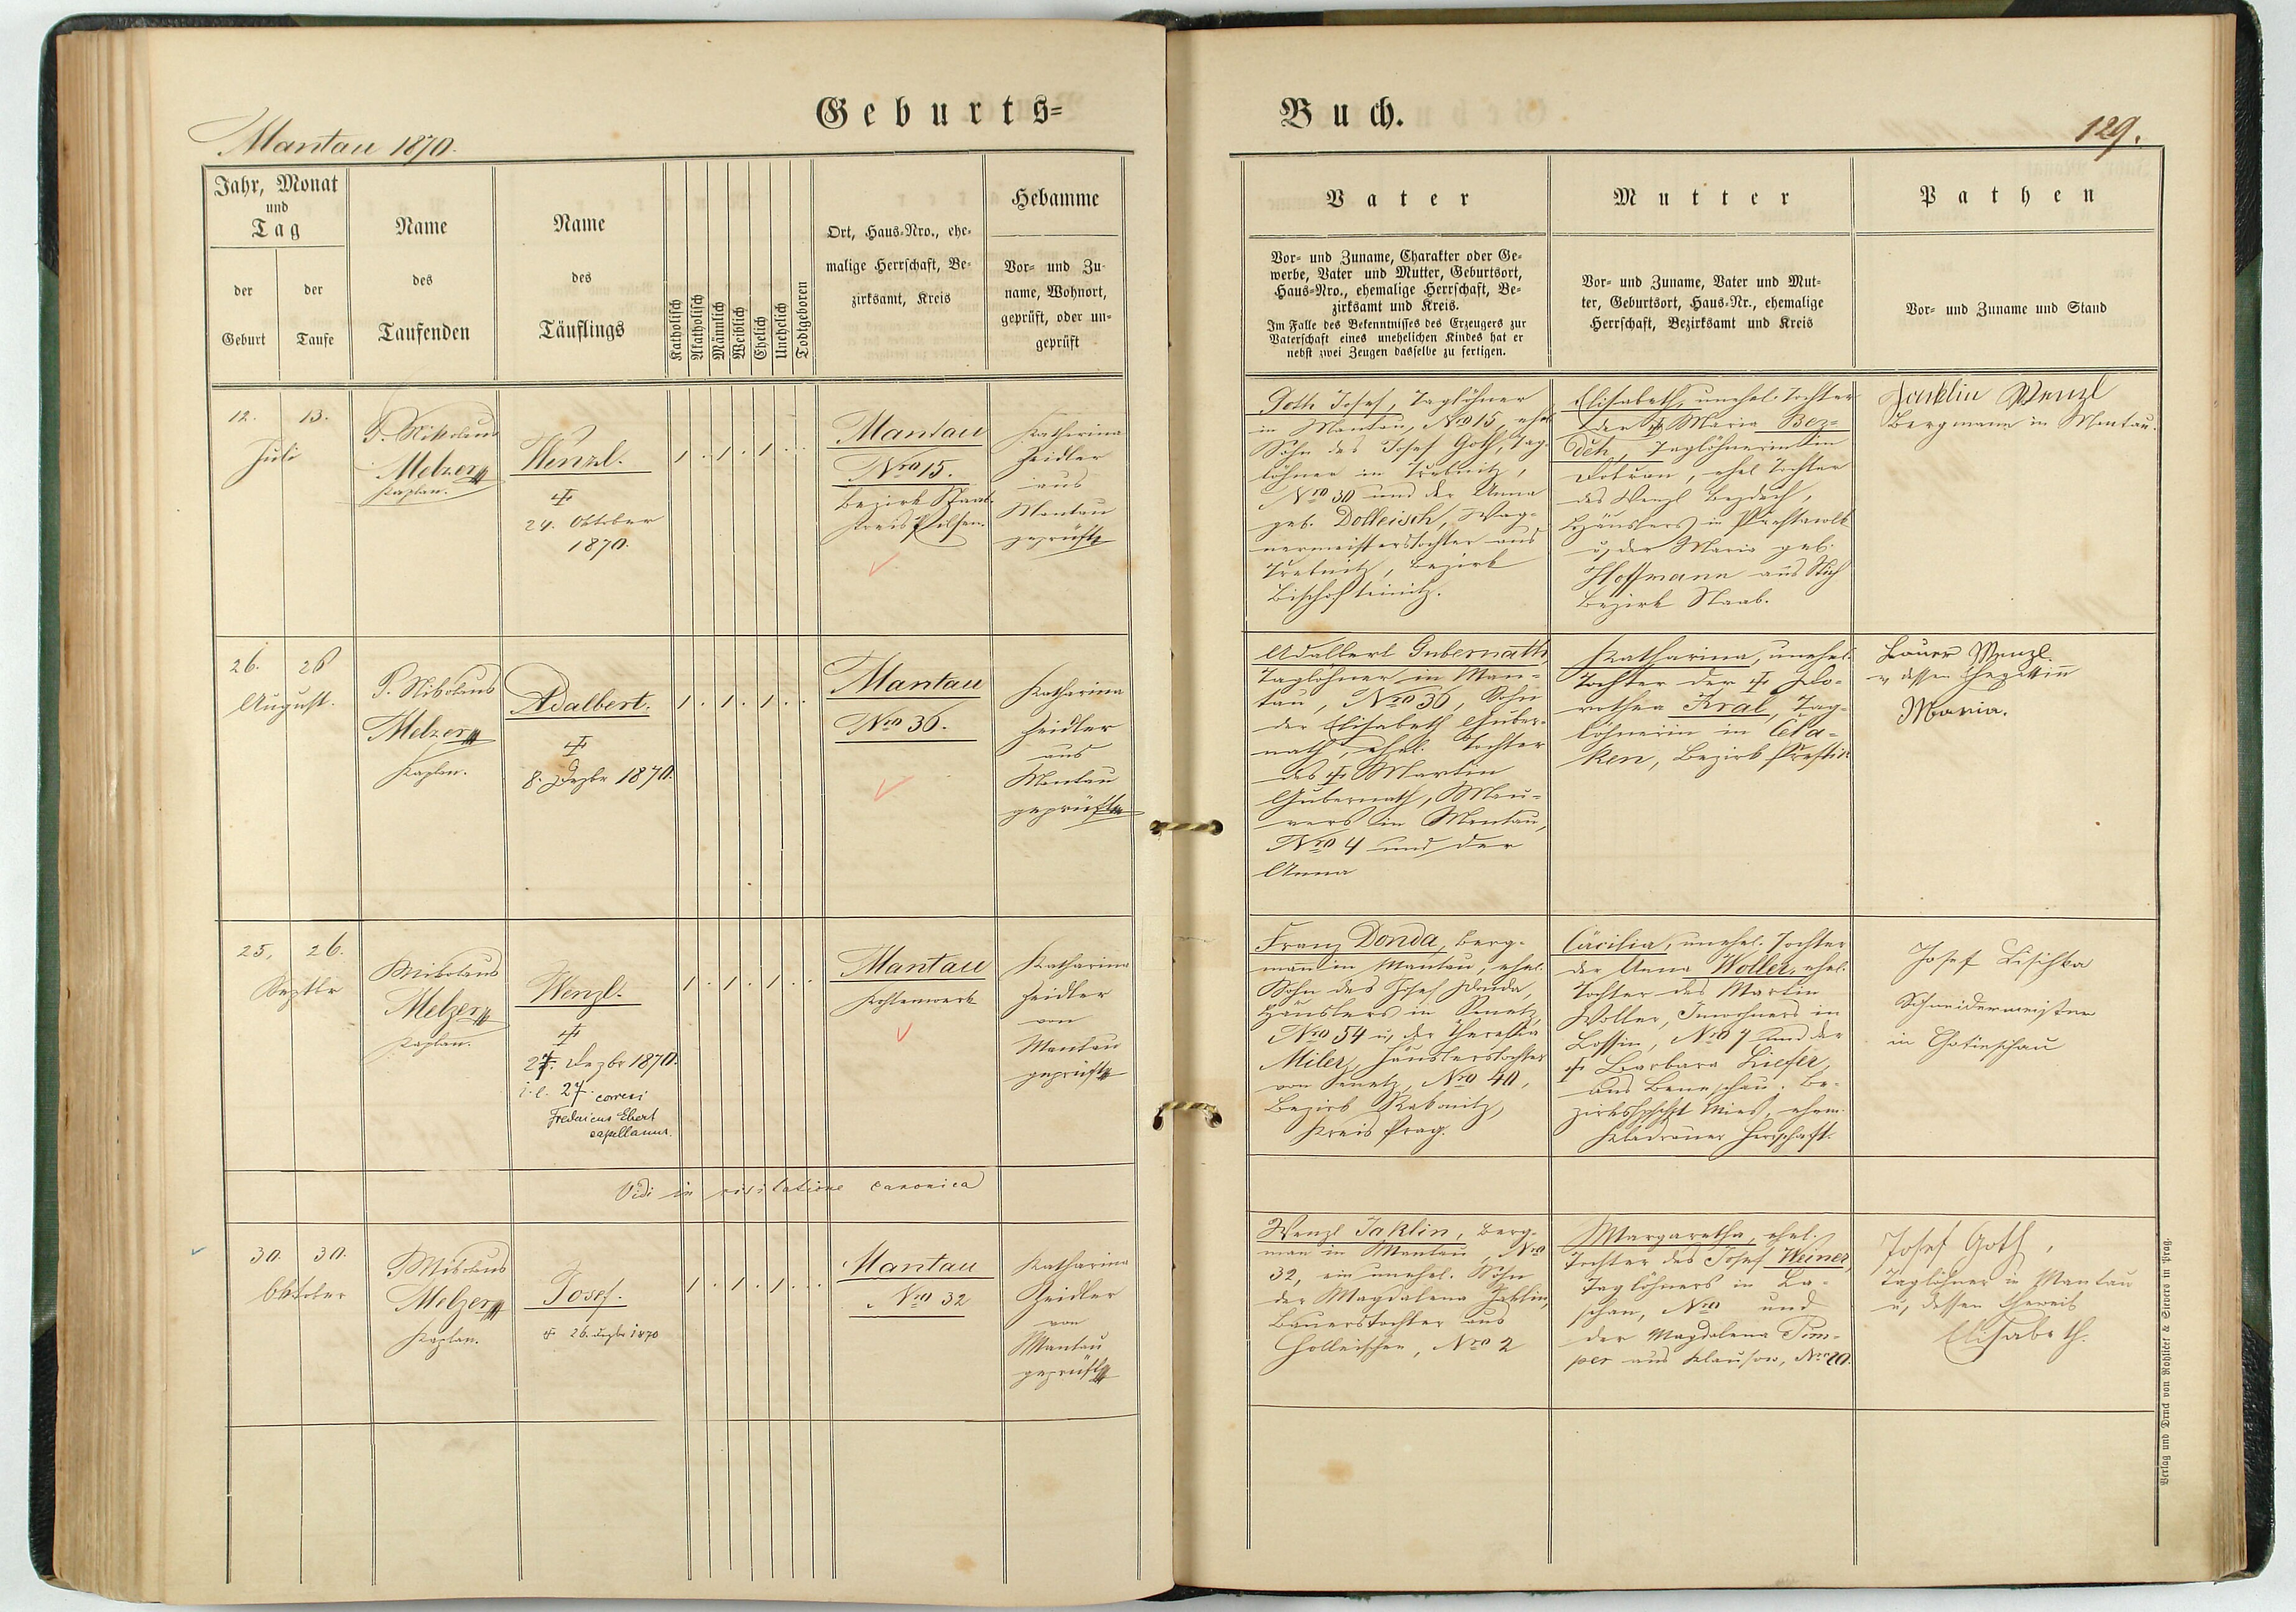 Geburts=
Buch.
Mantau 1870.
129.
Jahr, Monat
und
Tag
der
Geburt
der
Taufe
Name
des
Taufenden
Name
des
Täuflings
Katholisch
Akatholisch
Männlich
Weiblich
Ehelich
Unehelich
Todtgeboren
Ort, Haus-Nro., ehe-
malige Herrschaft, Be-
zirksamt, Kreis
Hebamme
Vor- und Zu-
name, Wohnort,
geprüft, oder un-
geprüft
Vater
Vor- und Zuname, Charakter oder Ge-
werbe, Vater und Mutter, Geburtsort,
Haus-Nro., ehemalige Herrschaft, Be-
zirksamt und Kreis.
Im Falle des Bekenntnisses des Erzeugers zur
Vaterschaft eines unehelichen Kindes hat er
nebst zwei Zeugen dasselbe zu fertigen.
Mutter
Vor- und Zuname, Vater und Mut-
ter, Geburtsort, Haus-Nr., ehemalige
Herrschaft, Bezirksamt und Kreis
Pathen
Vor- und Zuname und Stand
12. 13.
Juli
P. Nikolaus
Melzer
Kaplan.
Wenzl.
24. Oktober
1870.
1 . 1 . 1 . .
Mantau
Nro 15.
Bezirk Staab
Kreis Pilsen.
Katharina
Zeidler
aus
Mantau
geprüft
Goth Josef, Taglöhner
in Mantau, Nro 15, ehel.
Sohn des Josef Goth, Tag-
löhner in Trebnitz,
Nro 30 und der Anna
geb. Dolleisch, Wag-
nermeisterstochter aus
Trebnitz, Bezirk
Bischofteinitz.
Elisabeth, unehel. Tochter
der Maria Bez-
dek, Taglöhnerin in
Dobran, ehel. Tochter
des Wenzl Bezdech,
Häuslers in
u. der Maria geb.
Hoffmann aus
Bezirk Staab.
Jaklin Wenzl
Bergmann in Mantau.
26. 28
August.
P. Nikolaus
Melzer
Kaplan.
Adalbert.
8. Dezbr 1870.
1 . 1 . 1 . .
Mantau
Nro 36.
Katharina
Zeidler
aus
Mantau
geprüft
Adalbert Gubernath,
Taglöhner in Man-
tau, Nro 36, Sohn
der Elisabeth Guber-
nath, ehel. Tochter
des Martin
Gubernath, Mau-
rers in Mantau,
Nro 4 und der
Anna
Katharina, unehel.
Tochter der Do-
rothea Kral, Tag-
löhnerin in
ken, Bezirk
Bauer Wenzl
u. dessen Ehegattinn
Maria.
25. 26.
Septbr
Nikolaus
Melzer
Kaplan.
Wenzl.
27. Dezbr 1870.
i. e. 27. correxi
Fredericus Ebert
capellanus.
1 . 1 . 1 . .
Mantau
Kohlenwerk
Katharina
Zeidler
von
Mantau
geprüft
Franz Donda, Berg-
mann in Mantau, ehel.
Sohn des Josef Donda,
Häuslers in Senetz,
Nro 54 u. der Theresia
Miler, Häuslerstochter
von Senetz, Nro 40,
Bezirk Rakonitz,
Kreis Prag.
Cäcilia, unehel. Tochter
der Anna Woller, ehel.
Tochter des Martin
Woller, Inwohners in
Lossin, Nro 7 und der
Barbara Liefer,
aus Beneschau, Be-
zirkshptschft Mies, ehem.
Kladrauer Herrschaft.
Josef Lischka
Schneidermeister
in Chotieschau
Vidi in visitatione canonica
30. 30.
Oktober
Nikolaus
Melzer
Kaplan.
Josef.
26. Dezbr 1870
1 . 1 . 1 . .
Mantau
Nro 32
Katharina
Zeidler
von
Mantau
geprüft
Wenzl Jaklin, Berg-
man in Mantau, Nro
32, ein unehel. Sohn
der Magdalena Jaklin,
Bauerstochter aus
Holleischen, Nro 2
Margaretha, ehel.
Tochter des Josef Weiner,
Taglöhners in La-
schan, Nro und
der Magdalena Pim-
per aus Klausow, Nro 20.
Josef Goth,
Taglöhner in Mantau
u. dessen Eheweib
Elisabeth.
Verlag und Druck von Rohlicek & Sievers in Prag.